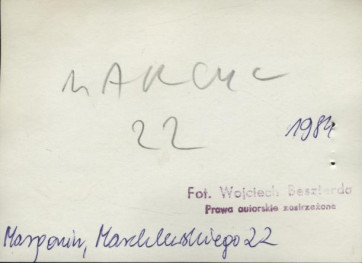 MARCHL
22
1984
Fot. Wojciech Beszterda
Prawa autorskie zastrzeżone
Margonin, Marchlewskiego 22